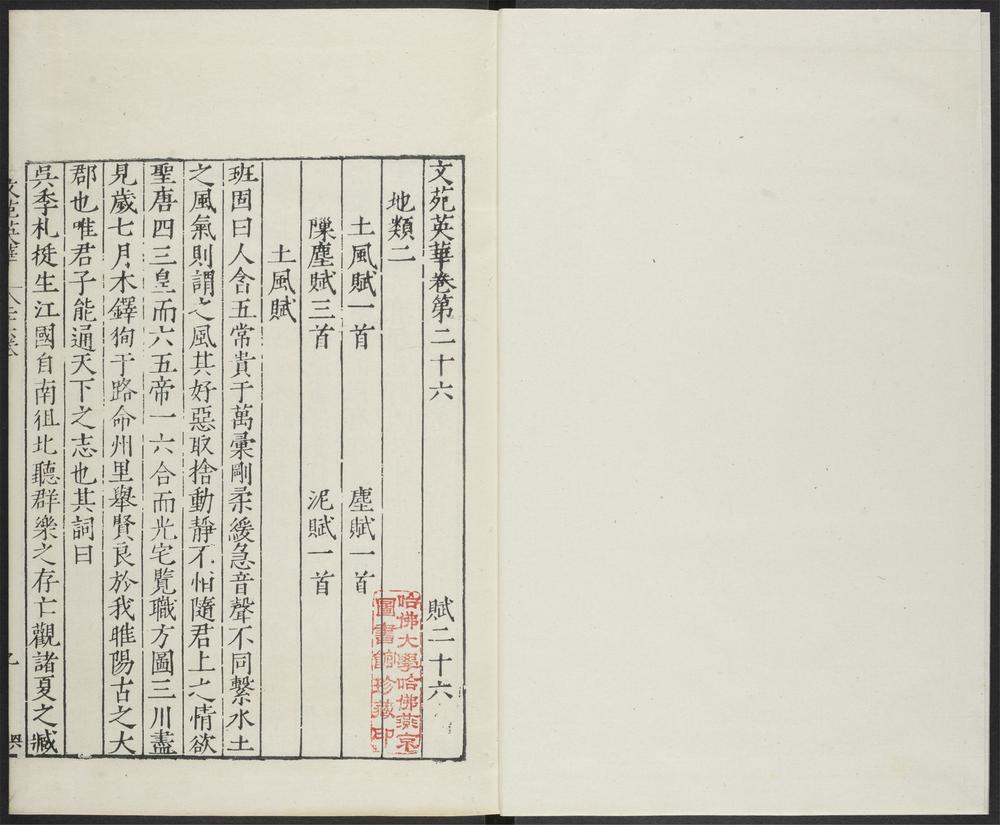 文苑英華卷第二十六　賦二十六
地類二
土風賦一首　塵賦一首
隟塵賦三首　泥賦一首
土風賦
班固曰人含五常貴于萬彙剛柔緩急音聲不同繫水土
之風氣則謂之風其好惡取捨動靜不恒隨君上之情欲
聖唐四三皇而六五帝一六合而光宅覽職方圖三川盡
見歲七月木鐸狥于路命州里舉賢良於我睢陽古之大
郡也唯君子能通天下之志也其詞曰
吳季札挺生江國自南徂北聽群樂之存亡觀諸夏之臧
哈佛大學哈佛燕京
圖書館珍藏印